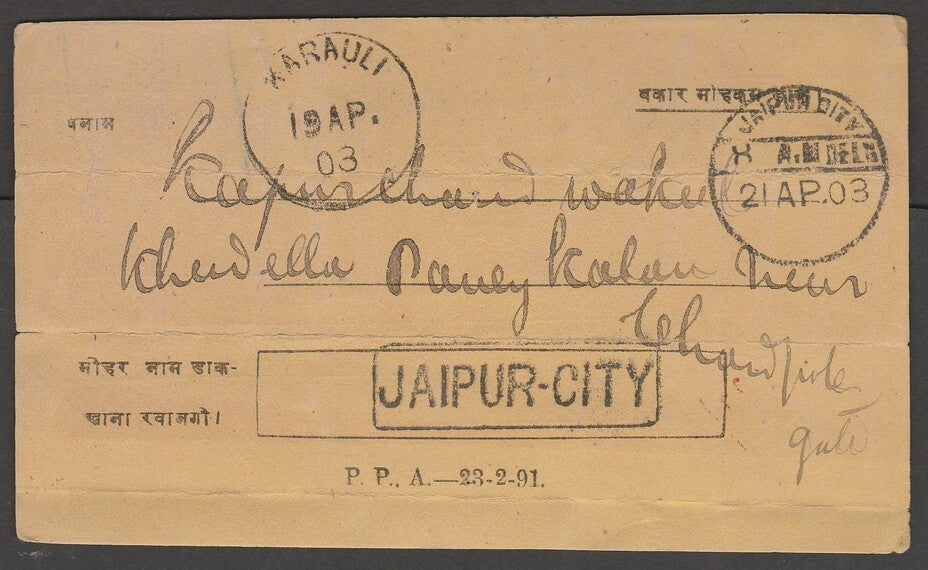 KARAULI
19 AP.
03
बकार मोहकमा डाक
JAIPUR CITY
A.M DELY
21 AP.03
बनाम
Kapurchand wakeel
Near
मोहर नाम डाक-
खाना रवानगी।
JAIPUR-CITY
Chandpole
gate
P. P., A.—23-2-91.